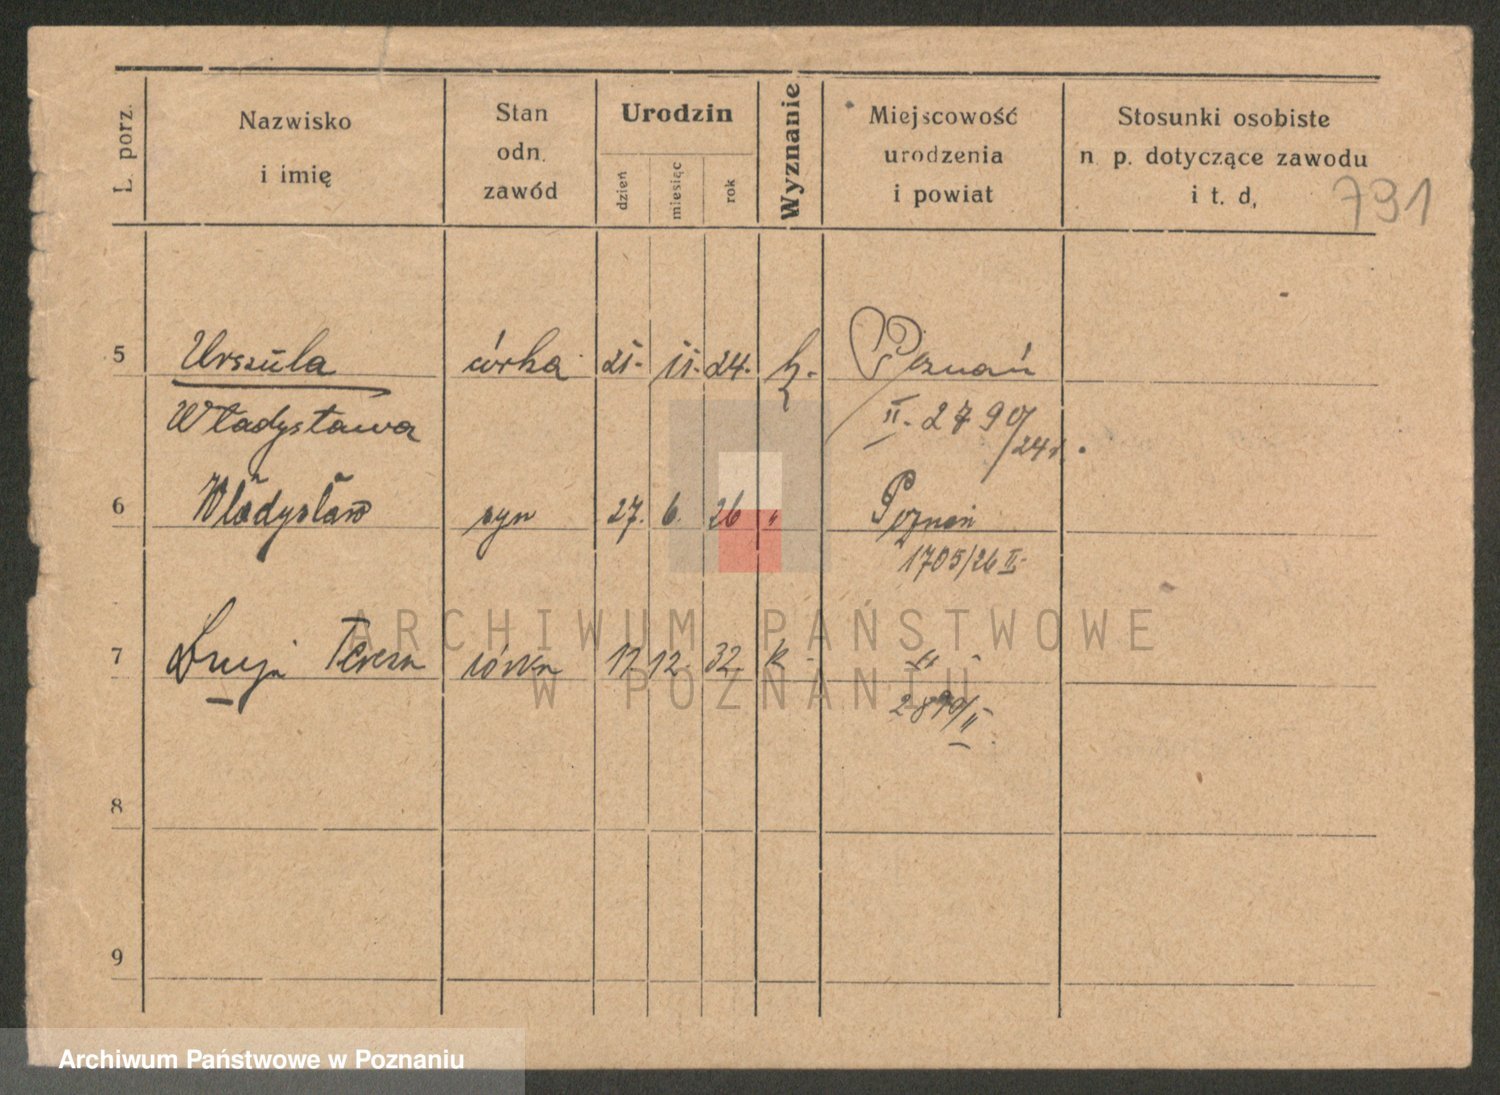 L. porz.
Nazwisko
i imię
Stan
odn.
zawód
Urodzin
dzień
miesiąc
rok
Wyznanie
Miejscowość
urodzenia
i powiat
Stosunki osobiste
n. p. dotyczące zawodu
i t. d.
791
5 Urszula córka 21. 11. 24. k. Poznań
Władysława II. 2790/24r.
6 Władysław syn 27. 6. 26 " Poznań
1705/26 II.
7 Teresa córka 17. 12. 32. k - " -
/II
8
9
ARCHIWUM PAŃSTWOWE
W POZNANIU
Archiwum Państwowe w Poznaniu